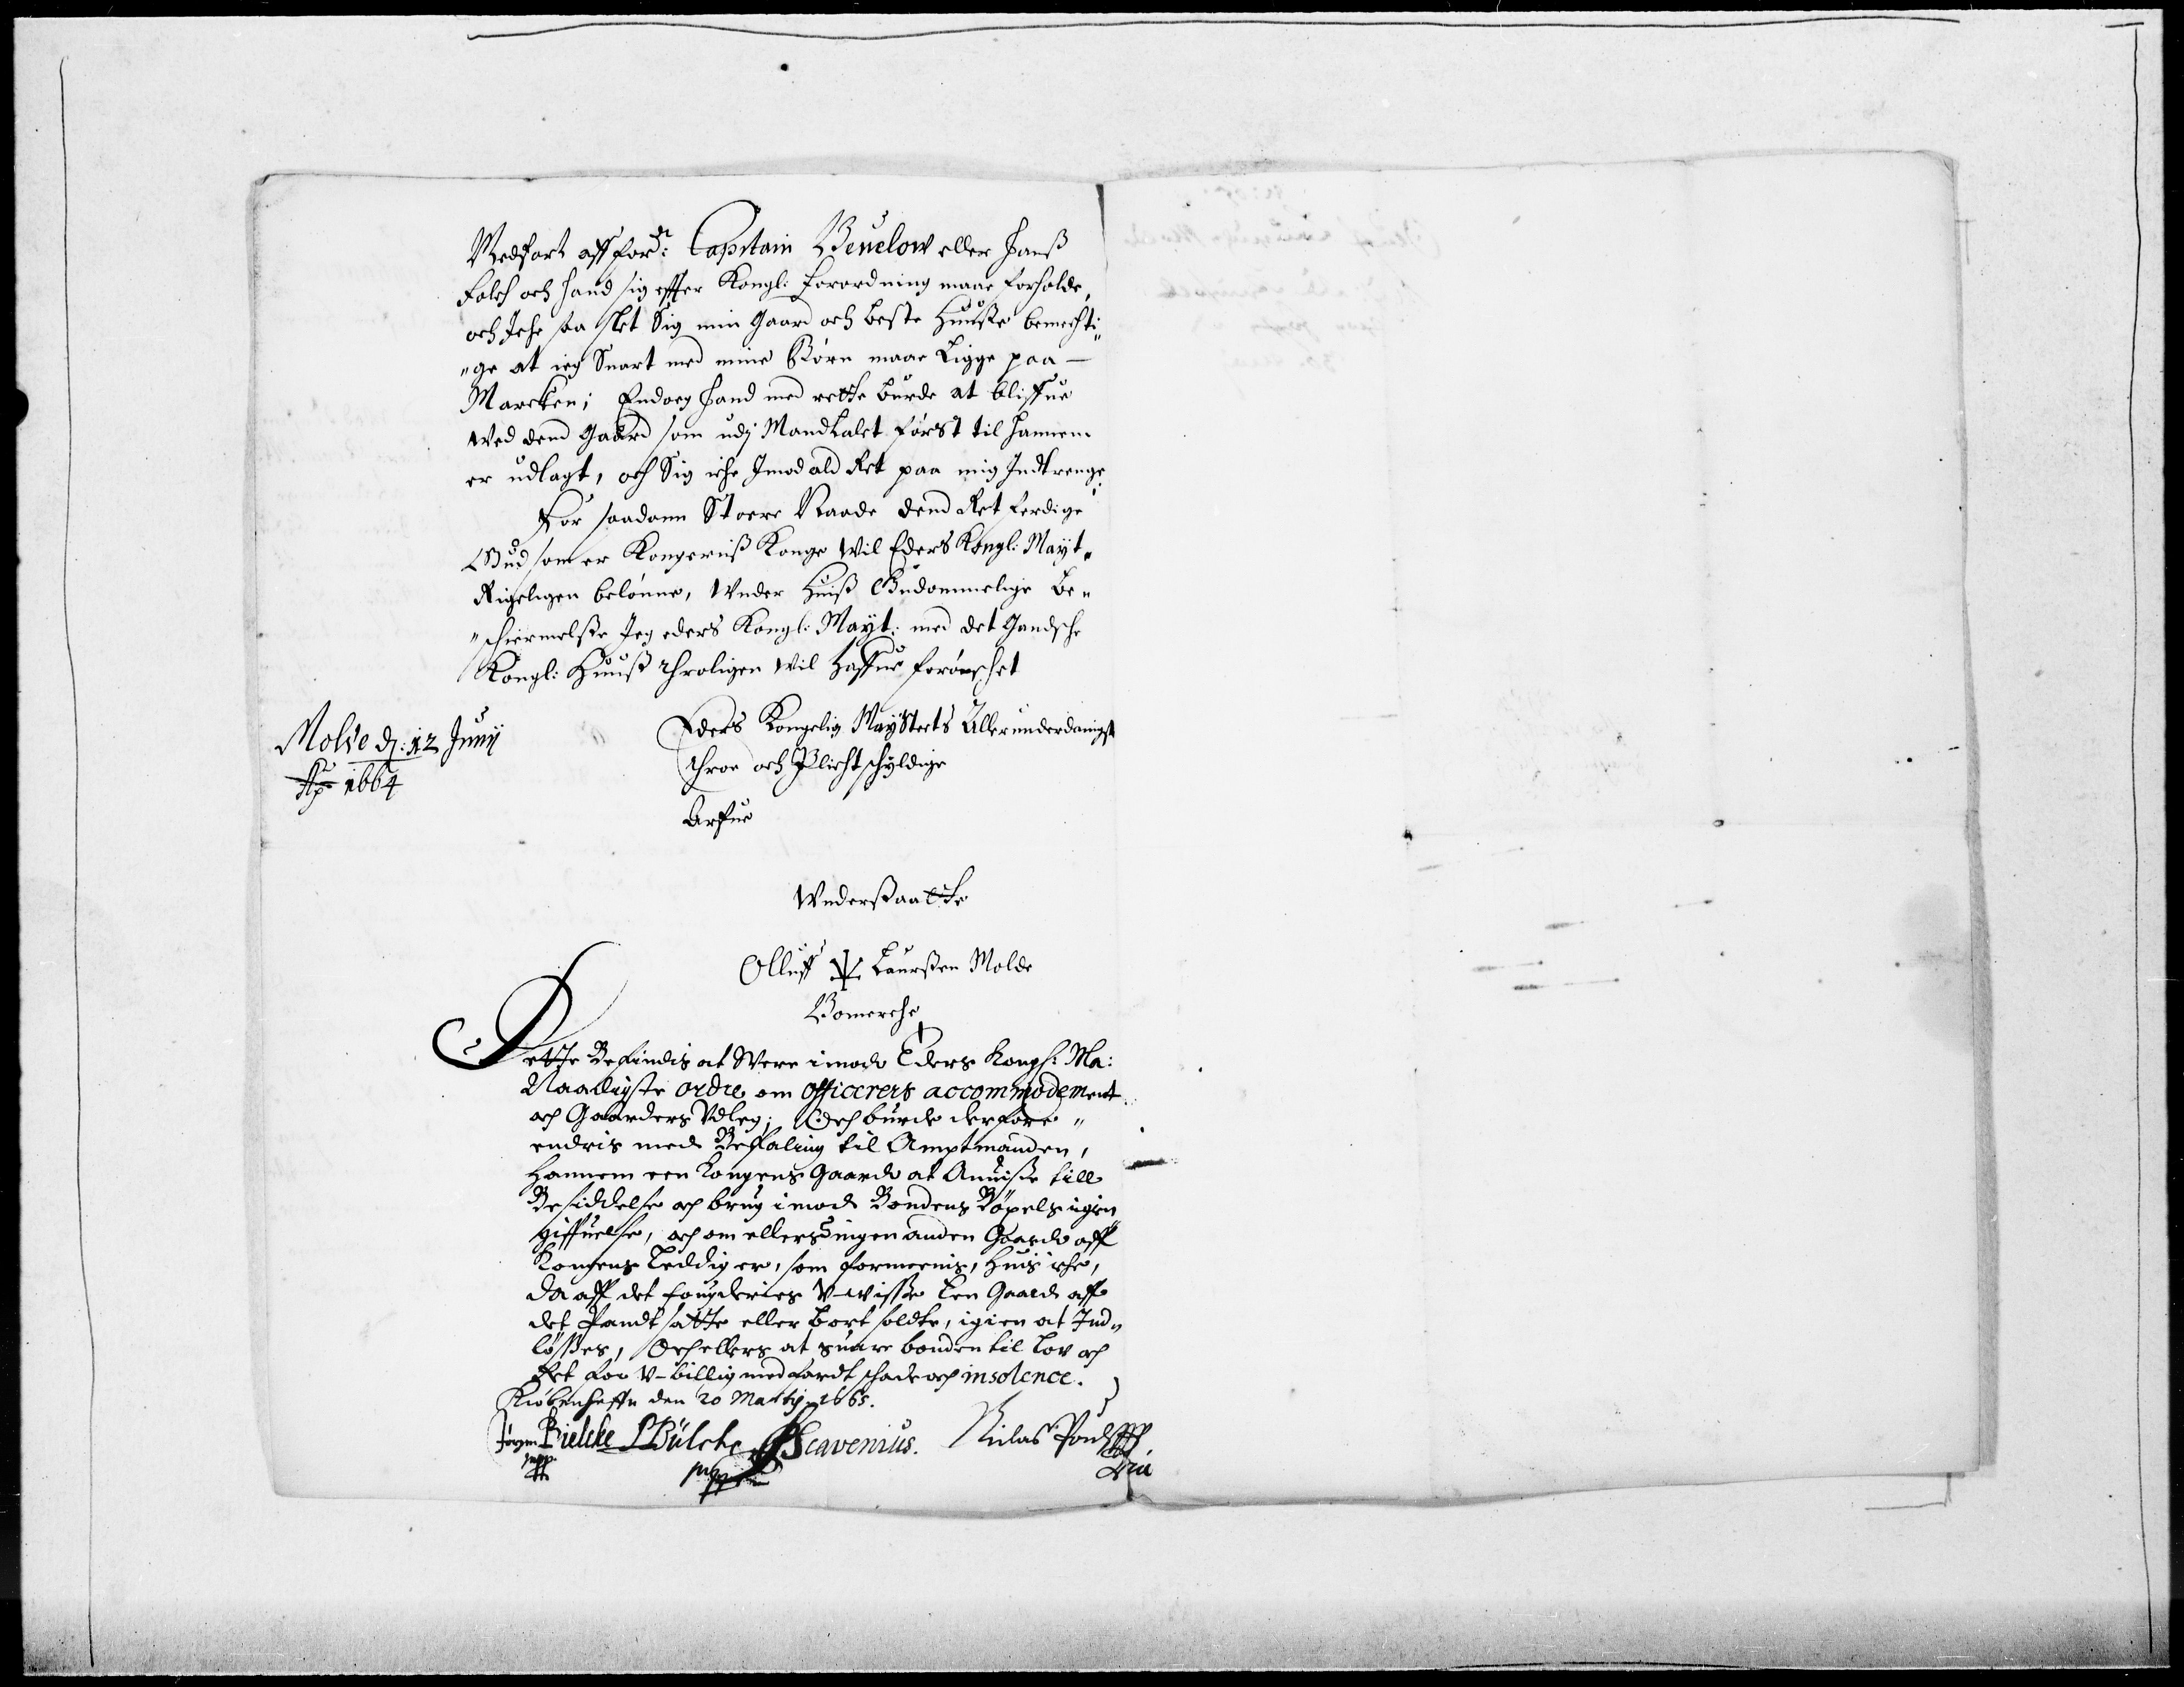 Medfart aff forde: Capitain Beuelow eller Hanß
Folch och hand sig effter Kongl: forordning maae forholde,
och Jche saa slet Sig min Gaard och beste Huuße bemechti„
„ge at ieg Snart med mine Børn maae Ligge paa —
Marcken; Endoeg Hand med rette burde at bliffue
wed dend Gaard som udj Mandtalet først til Hannem
er udlagt, och Sig iche Jmod ald Ret paa mig Jndtrenge.
For saadann Stoere Naade dend Ret ferdige
Gud som er Kongerniß Konge wil Eders Kongl: Mayt„
Rigeligen belønne, Wnder Huiß Gudommelige Be„
„schiermelße Jeg eders Kongl: Mayt: med det Gandsche
Kongl: Huuß throligen wil haffue forønschet
Molde dj: 12 Junij
Ao 1664
Eders Kongelig Maysteets Allerunderdanigst
throe och Plichtschyldige
Arfue
Wnderßaatte
Olluff Laurßen Molde
Bomerche
Dette Befindis at Were imod Eders Kongl: Ma:
Naadigste ordre om officerers accommodement
och Gaarders Vdleg; Och burde derfore „
endris med Befaling til Amptmanden,
Hannem een Kongens Gaard at Anuise till
Besiddelse och brug imod Bondens Köpels igien
giffuelse, och om ellers ingen anden Gaard aff
Kongens Leddig er, som formeenis, Huis iche,
da aff det fougderies V-wisse Een Gaard aff
det Pandtsatte eller bort soldte, igien at Ind„
løßes, Och ellers at suare bonden til Lov och
Ret for V-billig medfardt schade och insolence.
Kiøbenhaffn den 20 Martij 1665.
Jørgen Bielcke Bülche Scavenius. Niclas Poulß
mpp mpp